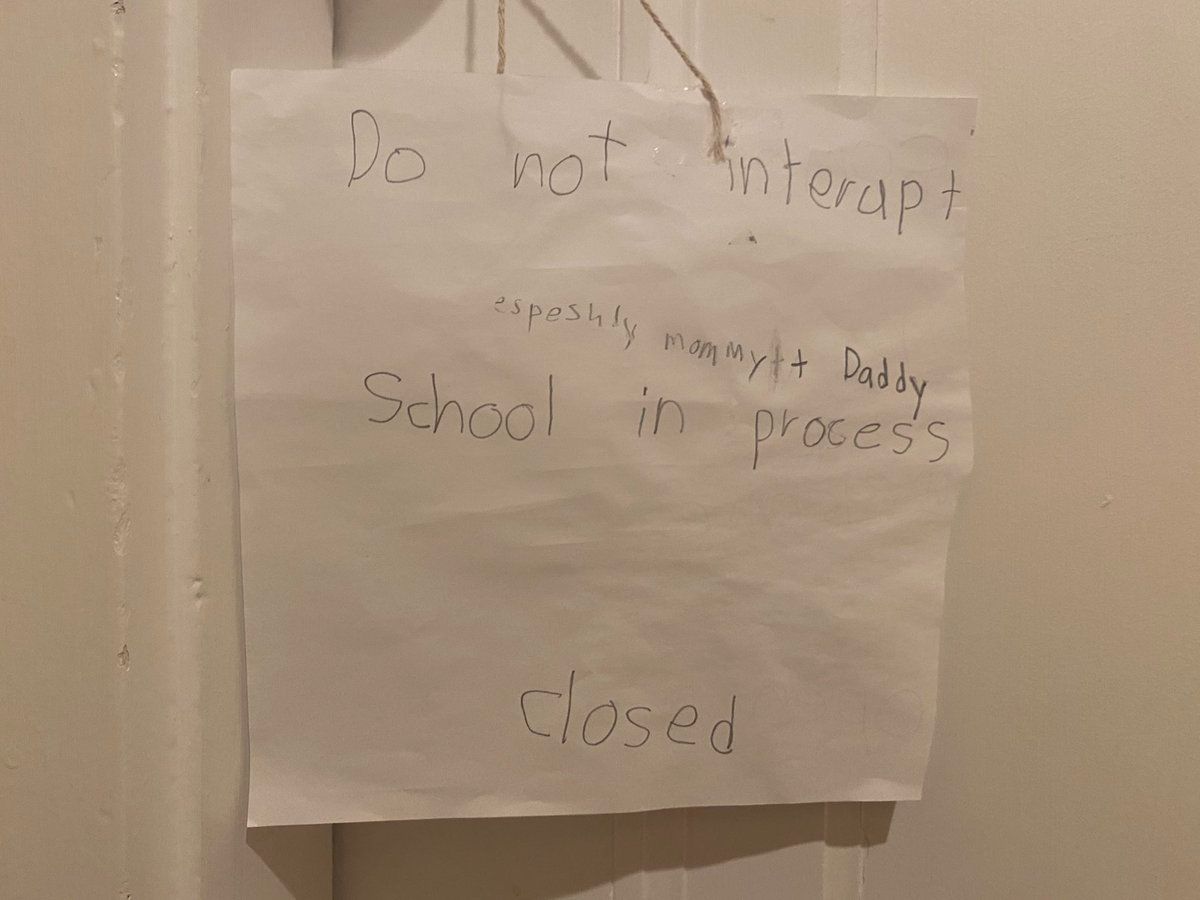 Do not interupt
espeshly mommy++ Daddy
School in process
closed